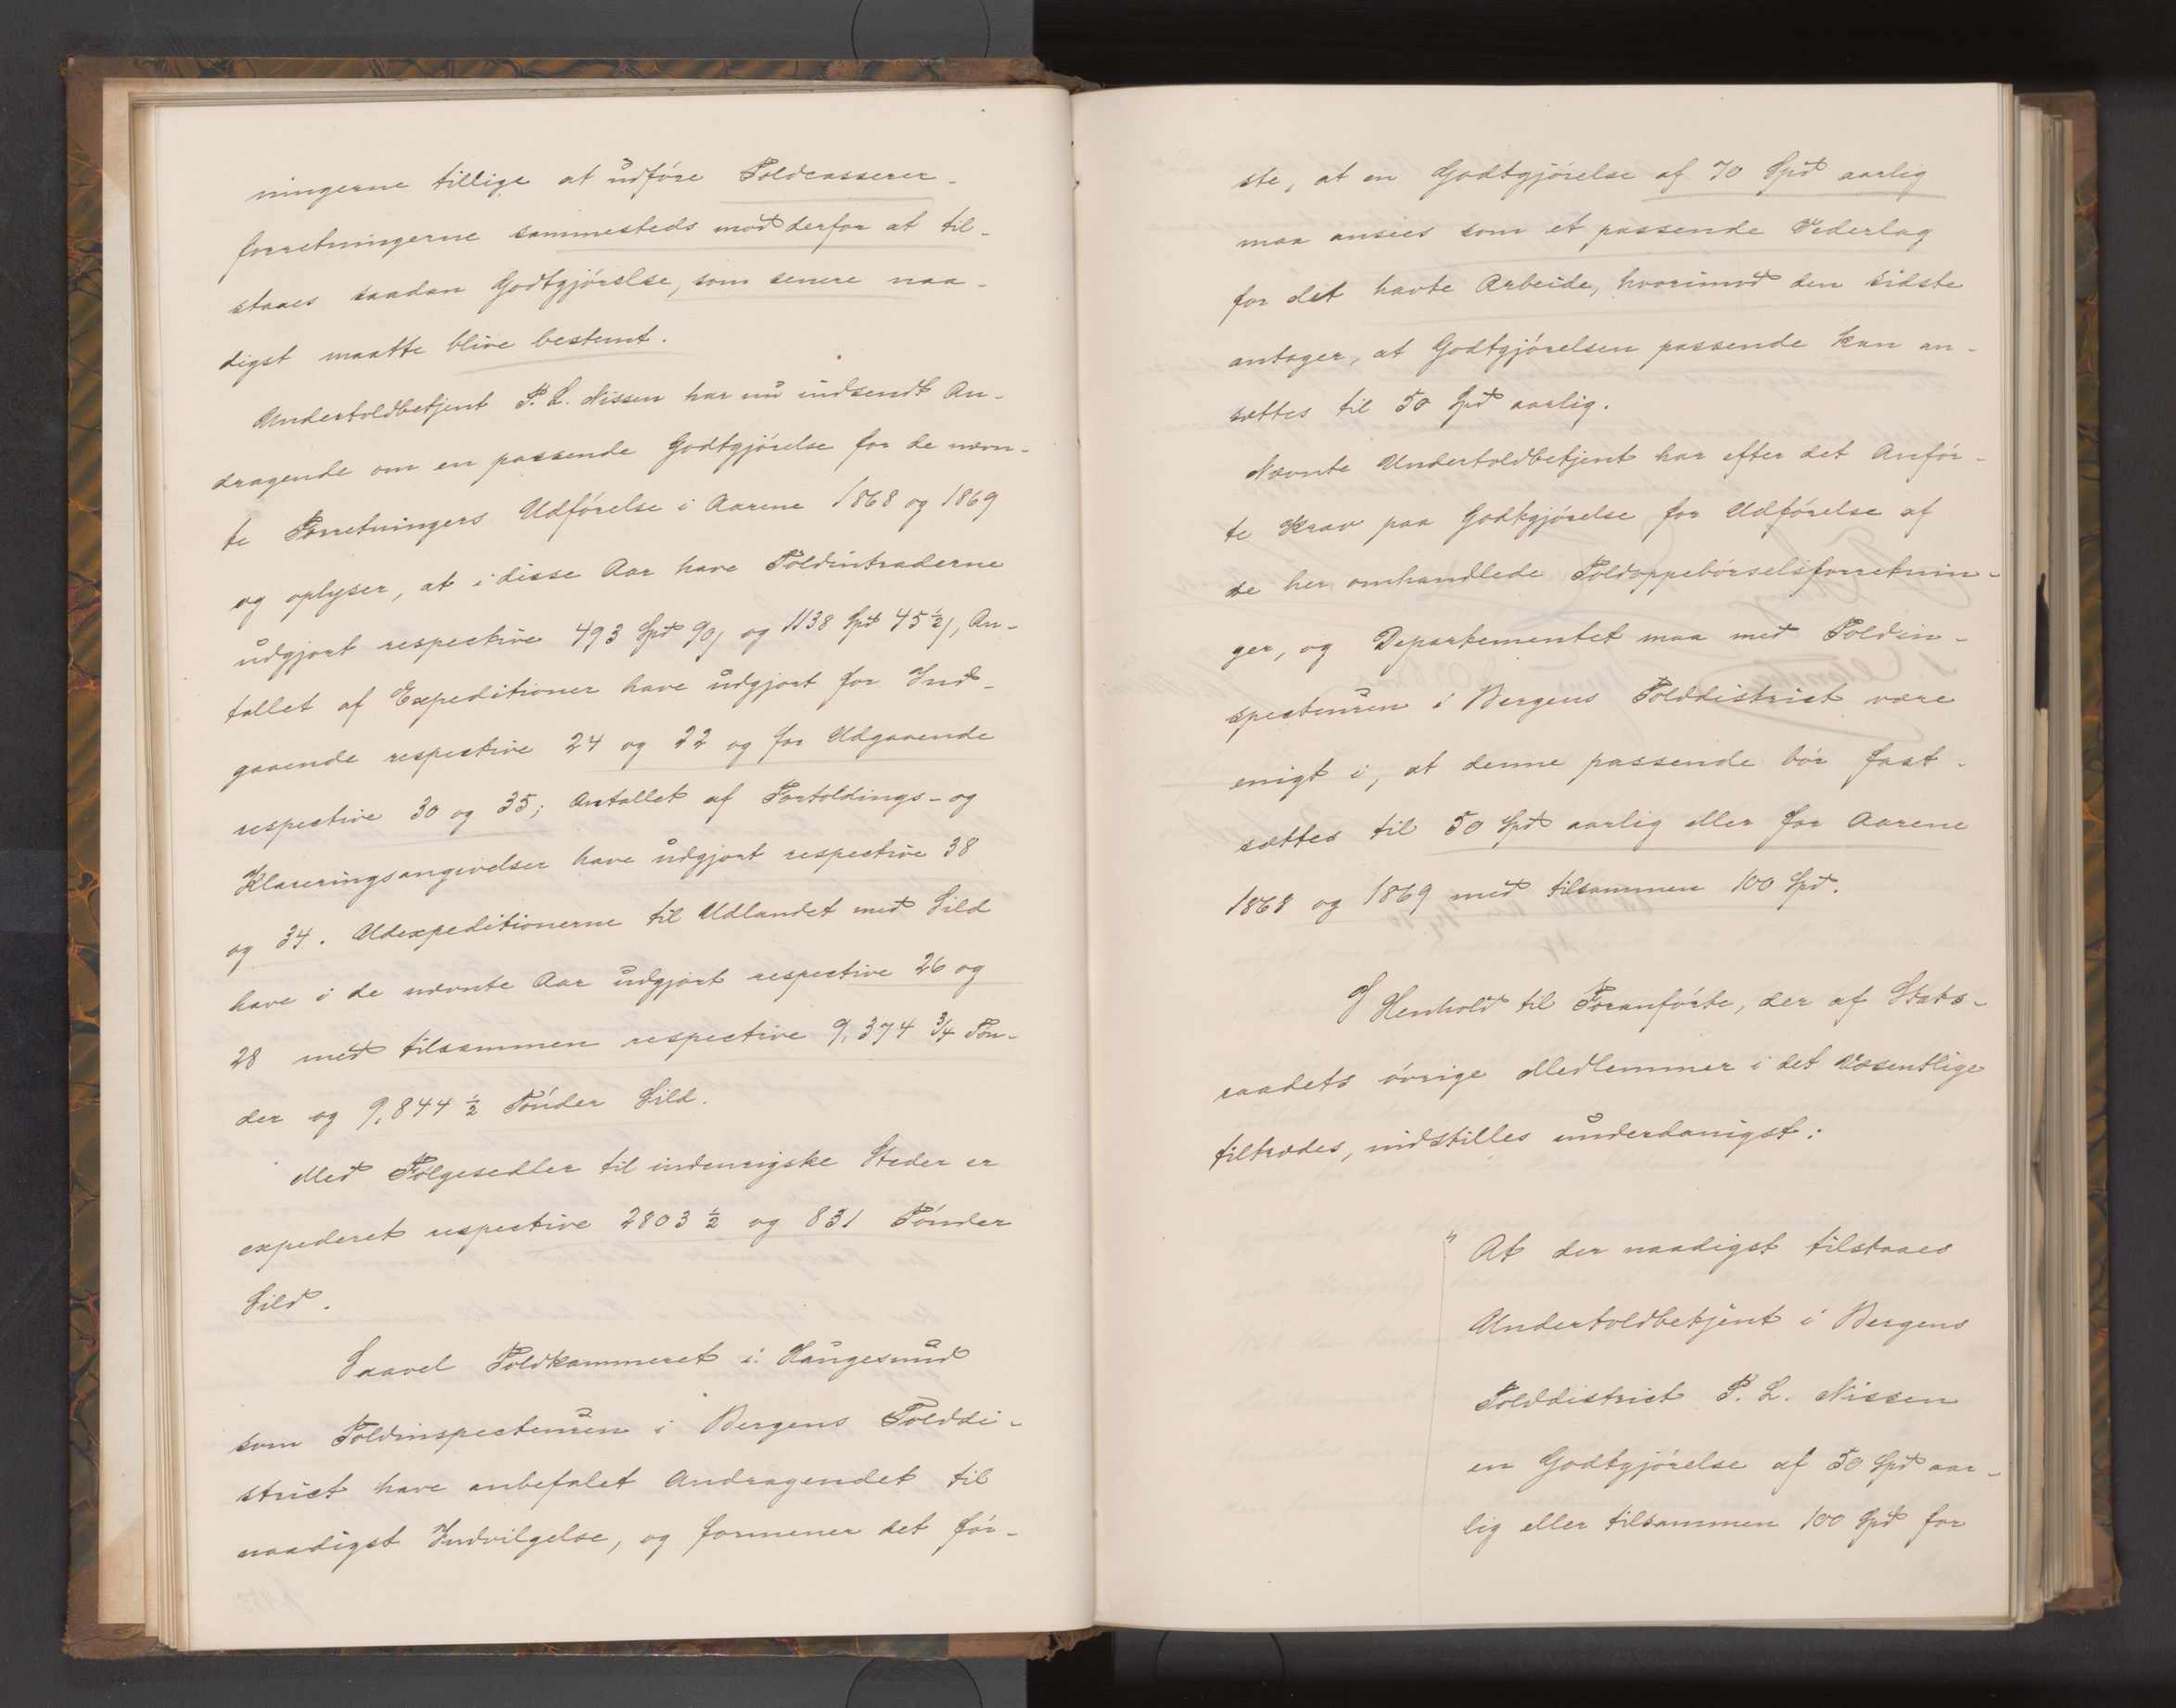 ningerne tillige at udføre Toldcasserer-
forretningerne sammesteds mod derfor at til-
staaes saadan Godtgjørelse, som senere naa-
digst maatte blive bestemt.
Undertoldbetjent P. L. Nissen har nu indsendt An-
dragende om en passende Godtgjørelse for de nævn-
te Forretningers Udførelse i Aarene 1868 og 1869
og oplyser, at i disse Aar have Toldintraderne
udgjort respective 493 Spd 90/ og 1138 Spd 45½/, An-
tallet af Expeditioner have udgjort for Ind-
gaaende respective 24 og 22 og for Udgaaende
respective 30 og 35; Antallet af Fortoldings- og
Klareringsangivelser have udgjort respective 38
og 34. Udexpeditionerne til Udlandet med Sild
have i de nævnte Aar udgjort respective 26 og
28 med tilsammen respective 9,374 ¾ Tøn-
der og 9,844 ½ Tønder Sild.
Med Følgesedler til indenrigske Steder er
expederet respective 2803 ½ og 831 Tønder
Sild.
Saavel Toldkammeret i Haugesund
som Toldinspecteuren i Bergens Tolddi-
strict have anbefalet Andragendet til
naadigst Indvilgelse, og formener det før-
ste, at en Godtgjørelse af 70 Spd aarlig
maa ansees som et passende Vederlag
for det havte Arbeide, hvorimod den sidste
antager, at Godtgjørelsen passende kan an-
sættes til 50 Spd aarlig.
Nævnte Undertoldbetjent har efter det Anfør-
te Krav paa Godtgjørelse for Udførelse af
de her omhandlede Toldoppebørselsforretnin-
ger, og Departementet maa med Toldin-
specteuren i Bergens Tolddistrict være
enigt i, at denne passende bør fast-
sættes til 50 Spd aarlig eller for Aarene
1868 og 1869 med tilsammen 100 Spd.
I Henhold til Foranførte, der af Stats-
raadets øvrige Medlemmer i det Væsentlige
tiltrædes, indstilles underdanigst:
"At der naadigst tilstaaes
Undertoldbetjent i Bergens
Tolddistrict P. L. Nissen
en Godtgjørelse af 50 Spd aar-
lig eller tilsammen 100 Spd for